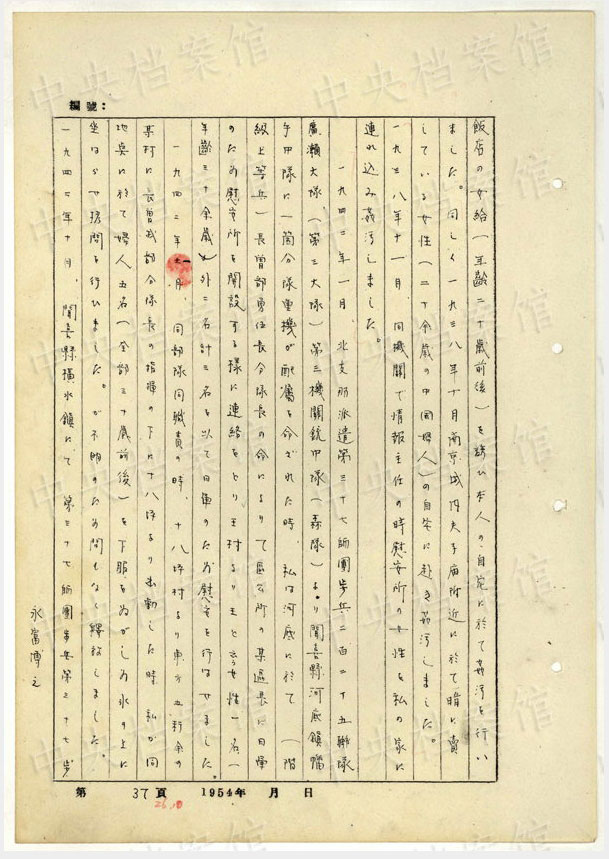 編號：
飯店の女給（年齢二十歳前後）を誘ひ本人の自宅に於て姦汚を行い
ました。同じく一九三八年十月南京城内夫子廟附近に於て暗に賣
している女性（二十余歳の中国婦人）の自宅に赴き姦汚しました。
一九三八年十一月、同機関で情報主任の時慰安所の女性を私の家に
連れ込み姦汚しました。
一九四二年一月、北支那派遣第三十七師團歩兵二百二十五聯隊
廣瀬大隊、（第三大隊）第三機關銃中隊（森隊）より聞喜縣河底鎮
中隊に一箇分隊重機が配屬を命ぜられた時、私は河底に於て（階
級上等兵）長曽部勇伍長分隊長の命によりて區公所の某區長に日軍
のため慰安所を開設する様に連絡をとり王村より王と云う女性一名（
年齢三十余歳）外二名計三名を以て日軍のため慰安を行はせました。
一九四二年 月、同部隊同職責の時、十八坪村より東方五粁余の
某村に長曽我部分隊長の指揮の下に十八坪より出動した時、私が同
地臭に於て婦人五名（全部三十歳前後）を下服をぬがしめ氷の上に
坐はらせ拷問を行ひました。が不明のため間もなく釋放しました。
一九四二年十月、聞喜縣横水鎮にて、第三十七師團 第三十七歩
永富博之
第 37 頁 1954年 月 日
26.10
中央档案馆